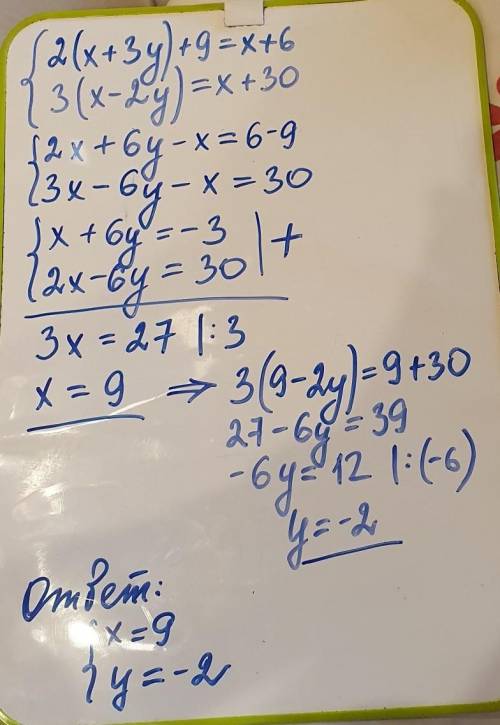 { 2(x+3y)+9=x+6
3(x-2y)=x+30
{ 2x+6y-x=6-9
3x-6y-x=30
{ x+6y=-3 | +
2x-6y=30
3x=27 |:3
x=9 ⇒ 3(9-2y)=9+30
27-6y=39
-6y=12 |:(-6)
y=-2
Ответ:
{ x=9
y=-2